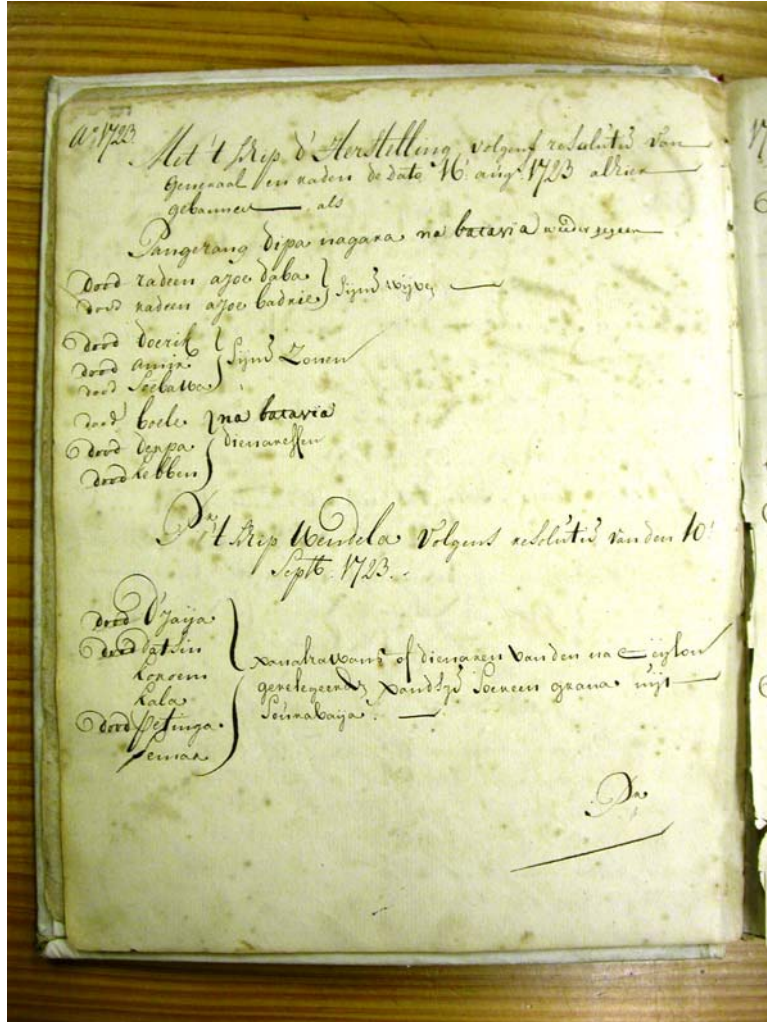 Aº 1723.
Met 't Schip d' Herstelling volgens resolutie van
Generaal en raden de dato 16: augs: 1723 alhier
gebannen als
Pangerang dipa nagara na batavia weder
dood radeen ajoe daba
dood radeen ajoe badrie } Sijns wijven
dood doerik
dood amir } Sijns Zonen
dood
dood boele } na batavia
dood } dienaressen
dood kebben
Pr. 't Schip Wendela Volgens resolutie van den 10:
Septb: 1723.
dood D'Jaija
dood datsin
koksem
kala
dood
Semar
of dienaren van den na Ceijlon
gerelegeerde grana uijt
Sourabaija.
Pr